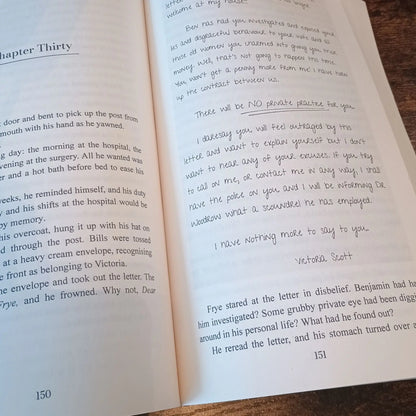 Chapter Thirty
door and bent to pick up the post from
mouth with his hand as he yawned.
g day: the morning at the hospital, the
vening at the surgery. All he wanted was
er and a hot bath before bed to ease his
weeks, he reminded himself, and his duty
y and his shifts at the hospital would be
by memory.
his overcoat, hung it up with his hat on
d through the post. Bills were tossed
at a heavy cream envelope, recognising
e front as belonging to Victoria.
he envelope and took out the letter. The
Frye, and he frowned. Why not, Dear
150
letter
welcome at my house.
Ben has had you investigated and exposed your
lies and disgraceful behaviour to your wife and to
those old women you charmed into giving you their
money. Well, that's not going to happen this time.
You won't get a penny more from me. I have torn
up the contract between us.
There will be NO private practice for you.
I daresay you will feel outraged by this
letter and want to explain yourself but I don't
want to hear any of your excuses. If you try
to call on me, or contact me in any way, I shall
have the police on you and I will be informing Dr
Woodrow what a scoundrel he has employed.
I have nothing more to say to you.
Victoria Scott
Frye stared at the letter in disbelief. Benjamin had ha
him investigated? Some grubby private eye had been diggi
around in his personal life? What had he found out?
He reread the letter, and his stomach turned over a
151